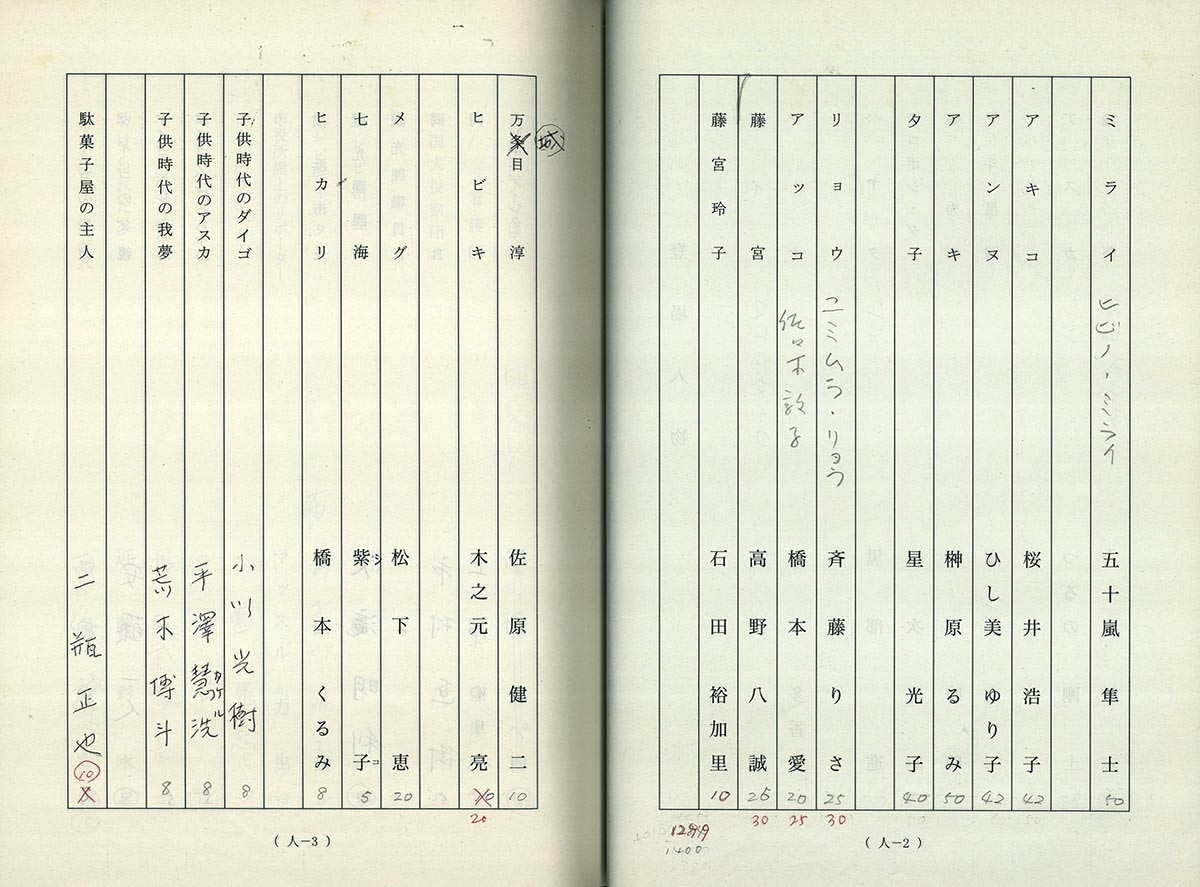 ミライ ヒビノ・ミライ 五十嵐隼士 50
アキコ 桜井浩子 42
アンヌ ひし美ゆり子 42
アキ 榊原るみ 50
夕子 星光子 40
リョウ ユミムラ・リョウ 斉藤りさ 25 30
アツコ 佐々木敦子 橋本愛 20 25
藤宮 高野八誠 25 30
藤宮玲子 石田裕加里 10
1299
1400
(人−2)
万条目淳 城 佐原健二 10
ヒビキ 木之元亮 20
メグ 松下恵 20
七海 紫子 シ コ 5
ヒカリ 橋本くるみ 8
子供時代のダイゴ 小川光樹 8
子供時代のアスカ 平澤慧洸 カケル 8
子供時代の我夢 荒木博斗 8
駄菓子屋の主人 二瓶正也 10
(人−3)